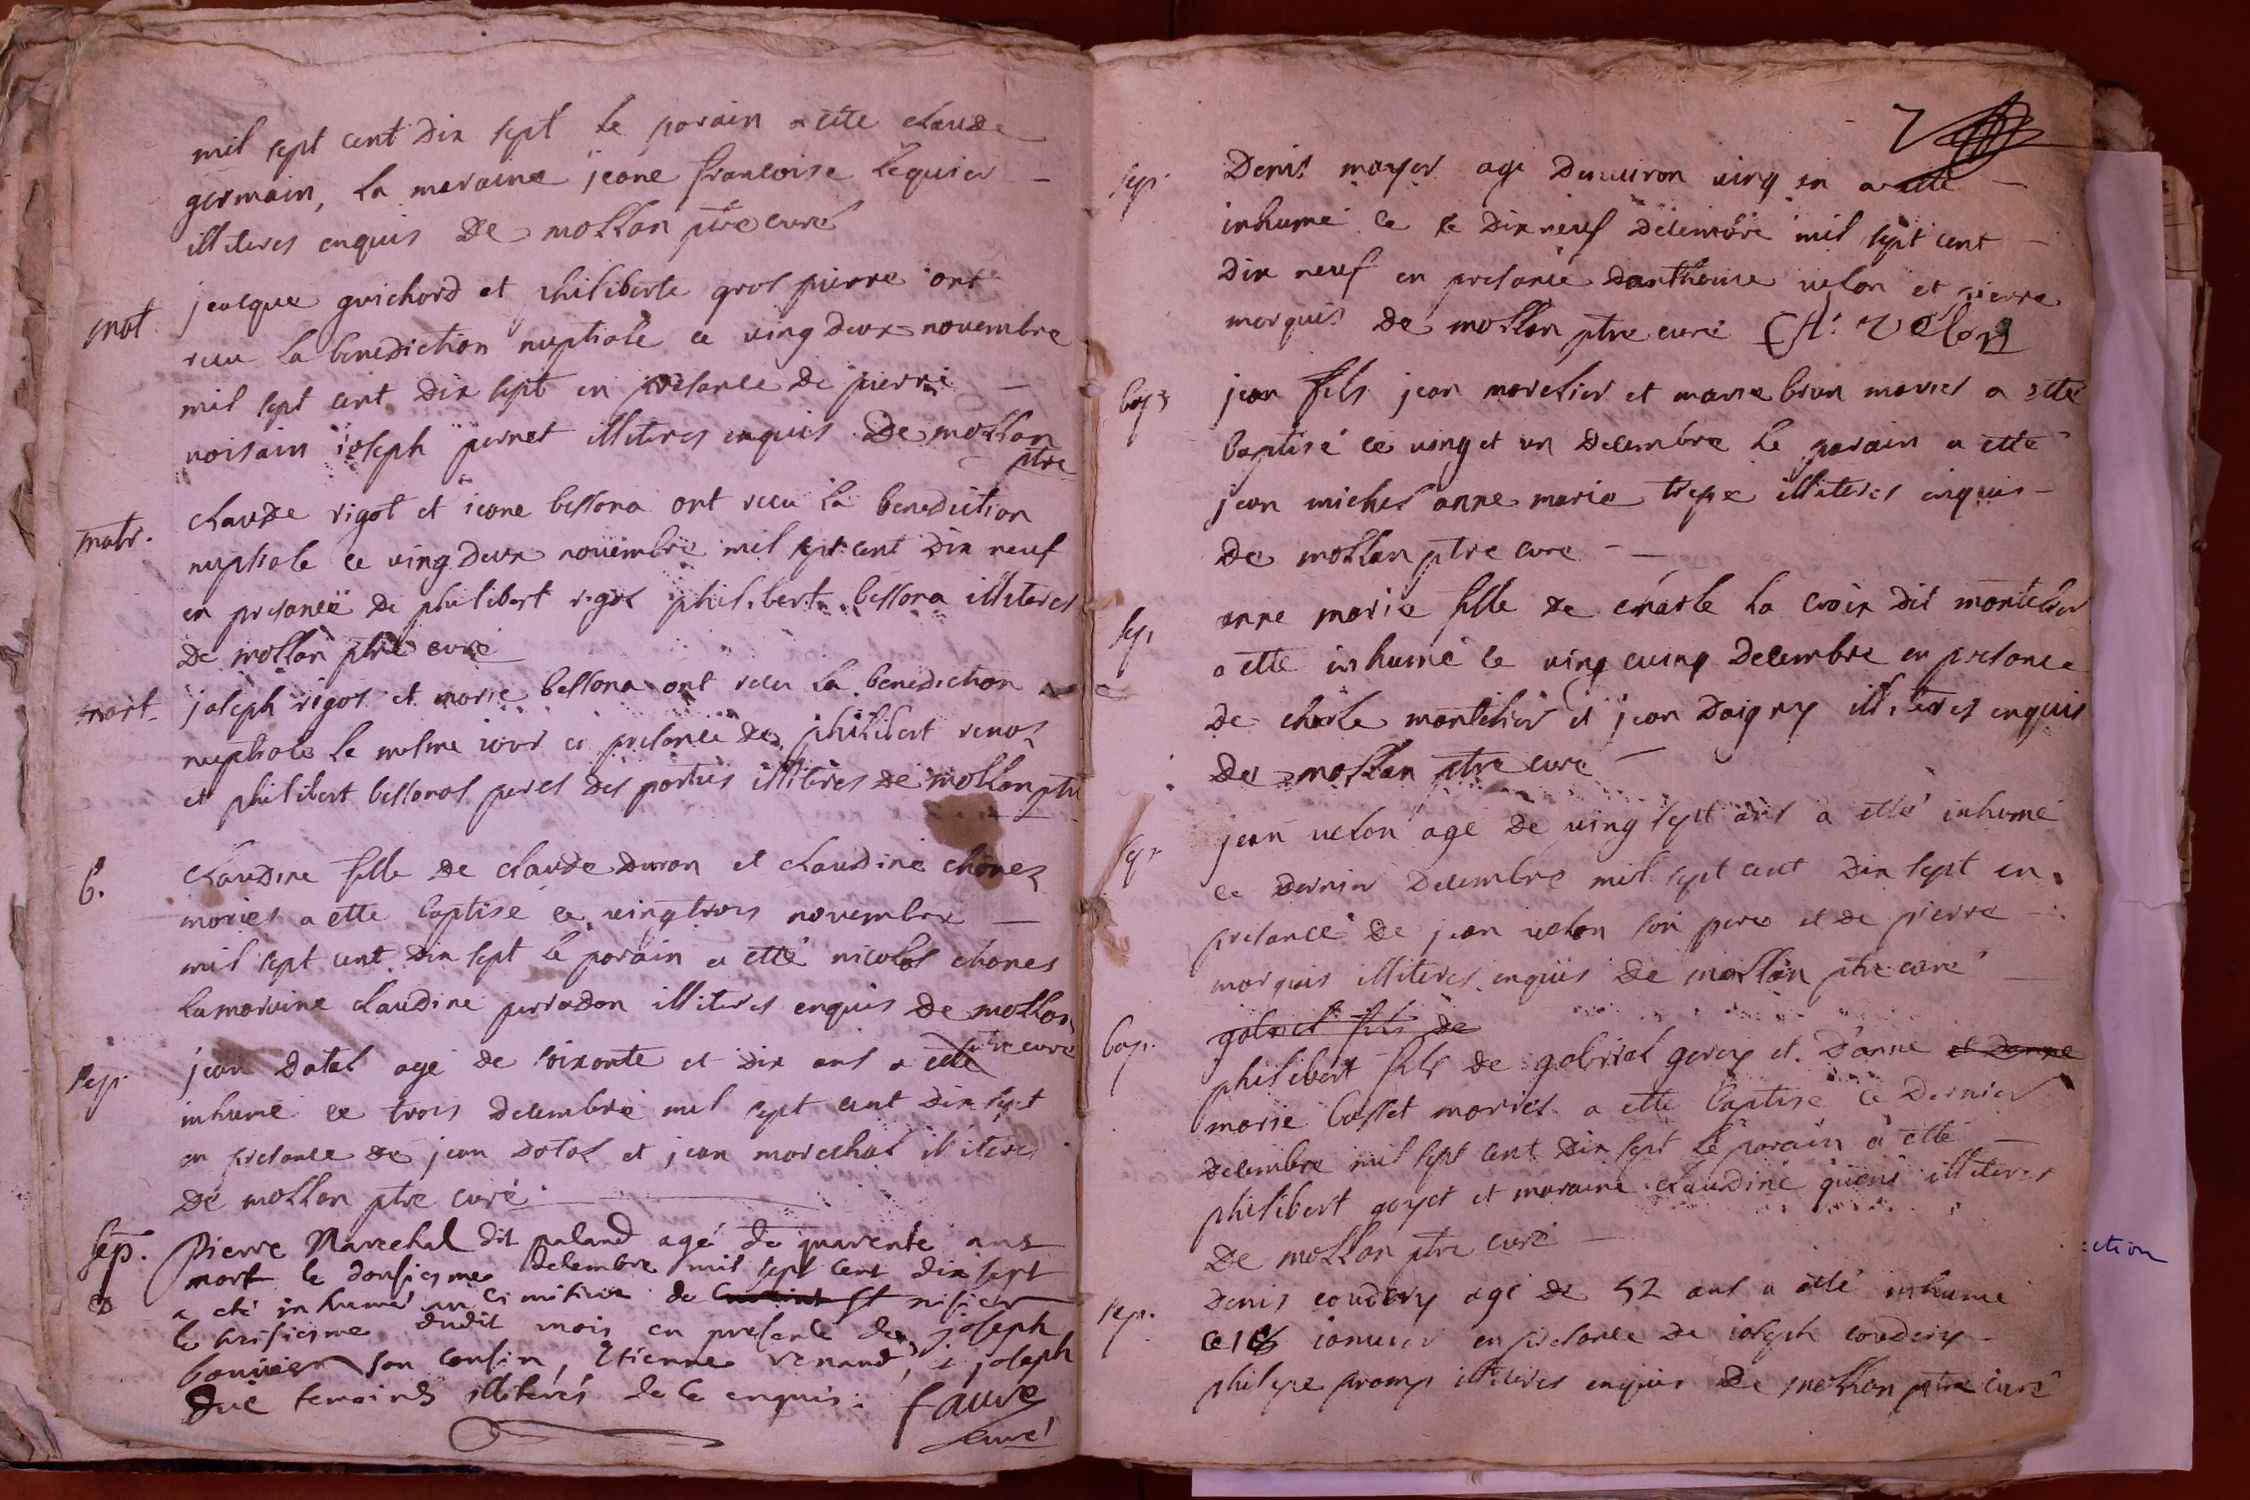 mil sept cent dix sept le parain a ette claude
germain, la maraine jeane francoise lequier
illiteres enquis De mollan ptre curé
mat. jeacque guichard et philiberte gros pierre ont
receu la benediction nuptiale ce ving deux novembre
mil sept cent dix sept en presance de pierre
voisain joseph pernet illiteres enquis De mollan
ptre
matr. claude rigot et jeane bessona ont receu la benediction
nuptiale ce ving deux novembre mil sept cent dix neuf
en presance de philibert rigot philibert bessona illiteres
De mollan ptre curé
mart. joseph rigot et marie bessona ont receu la benediction
nuptiale le mesme jour en presance de philibert
et philibert bessonat peres des parties illiteres de mollan ptre
b. claudine fille de claude duron et claudine chanes
mariés a ette baptisé ce vingtrois novembre
mil sept cent dix sept le parain a etté nicolas chanes
la maraine claudine perradon illiteres enquis de mollan
ptre curé
sep. jean datal agé de soixante et dix ans a etté
inhumé ce trois decembre mil sept cent dix sept
en presance de jean datal et jean marechal illiteres
De mollan ptre curé
Sep. Pierre Marechal dit paland agé de quarente ans
mort le dousiesme decembre mil sept cent dix sept
a eté inhumé au cimitiere de St nisier
le tresiesme dudit mois en presence de joseph
bouvier son cousin, Etienne renaud, & joseph
Duc temoins illiterés de ce enquis. faure
curé
7
sep. Denis mayer agé denuiron ving en a etté
inhumé ce le dix neuf decembre mil sept cent
dix neuf en presance danthoine velon et pierre
marquis De mollan ptre curé A. velon
bap. jean fils jean marelier et marie brun mariés a etté
baptisé ce ving et un decembre le parain a etté
jean michel anne marie trepe illiteres enquis
De mollan ptre curé
sep. anne marie fille de charle la croix dit montelier
a etté inhumé le ving cinq decembre en presance
de charle montelier et jean daigny illiteres enquis
De mollan ptre curé
sep. jean velon agé de ving sept ans a etté inhumé
ce dernier decembre mil sept cent dix sept en
presance de jean velon son pere et de pierre
marquis illiteres enquis de mollan ptre curé
bap. gabriel fils de
philibert fils de gabriel goyet et d'anne et danne
marie basset mariés a etté baptisé ce dernier
decembre mil sept cent dix sept le parain a etté
philibert goyet et maraine claudine illiteres
De mollan ptre curé
sep. Denis coudery agé de 52 ans a etté inhumé
ce januier en presance de joseph coudery
philipe promp illiteres enquis De mollan ptre curé
ction